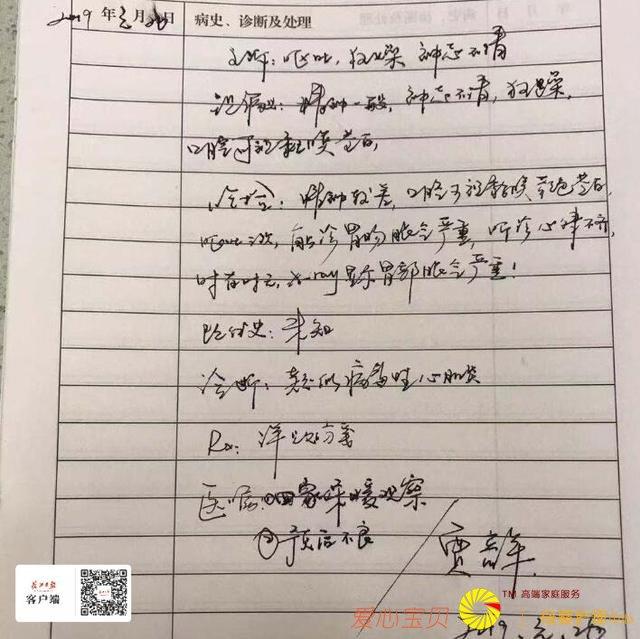 2019年 月 日 病史、诊断及处理
主诉：呕吐，狂燥 神志不清
现病史：精神一般，神志不清，狂燥，
口腔可视黏膜苍白，
检查：精神较差，口腔可视黏膜 苍白，
呕吐 ，触诊胃肠胀气严重，听诊心律不齐，
时有时无，X-ray显示胃部胀气严重！
既往史：未知
诊断：疑似病毒性心肌炎
Rx：详见处方笺
医嘱：①回家保暖观察
②预后不良
贾
长江日报
客户端
爱心宝贝
TM 高端家庭服务
2019.